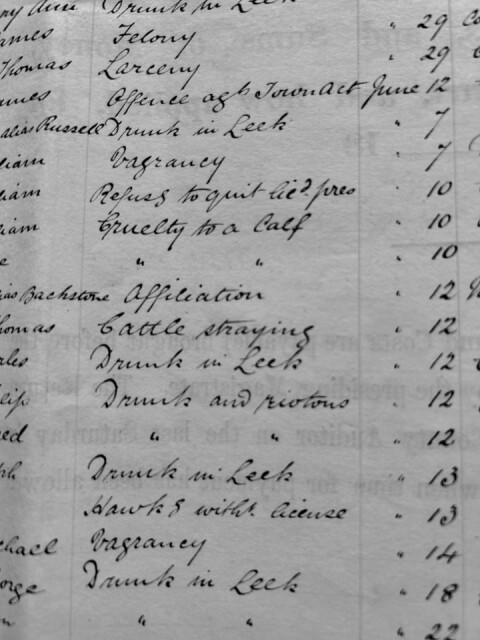 ny Ann Drunk in Leek
ames Felony " 29 Co
Thomas Larceny " 29
ames Offence agst Town Act June 12
alias Russell Drunk in Leek " 7
liam Vagrancy " 7
liam Refusg to quit licd. pres " 10
liam Cruelty to a Calf " 10
e " " " 10
ias Backstone Affiliation " 12
homas Cattle straying " 12
rles Drunk in Leek " 12
lip Drunk and riotous " 12
red " " " 12
ph Drunk in Leek " 13
Hawkg witht. license " 13
chael Vagrancy " 14
orge Drunk in Leek " 18
" " " 22